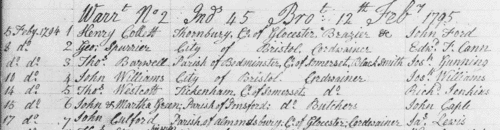 Warrt. No 2 Ind 45 Brot. 12th Feby 1795
5 Feby. 1794 1 Henry Collett Thornbury, Co. of Glocester Brazier &c John Ford
8 do. 2 Geo: Spurrier City of Bristol Cordwainer Edwd. T. Cann
do. do. 3 Thos. Barwell Parish of Bedminster, C. of Somerset, Black Smith Jos: Gunning
10 do. 4 John Williams City of Bristol. Cordwainer Jos: Williams
14 do. 5 Thos. Westcott Tickenham, C. of Somerset do. Richd. Jenkins
15 do. 6 John & Martha Green; Parish of Pensford: do. Butchers John Caple
17 do. 7 John Parish of Almondsbury: C. of Glocester: Cordwainer Jas. Lewis